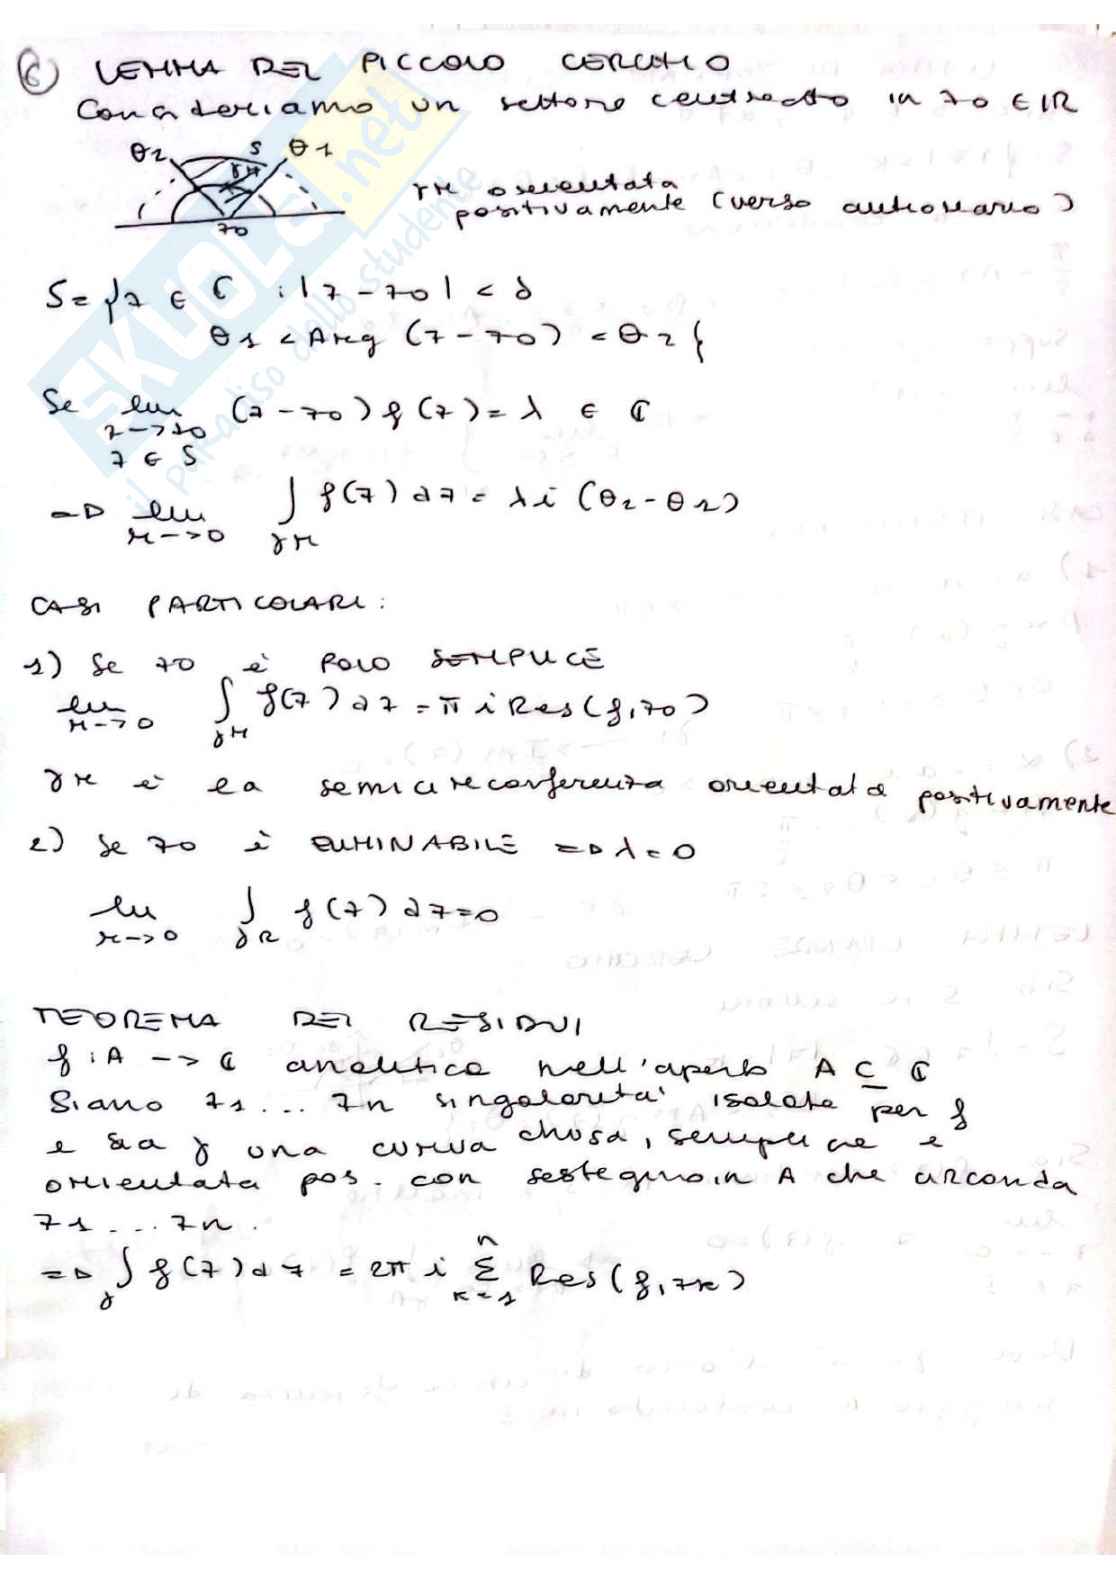 6) LEMMA DEL PICCOLO CERCHIO
Consideriamo un settore centrato in z0 ∈ IR
θ2 S θ1
γr
z0
γr orientata
positivamente (verso antiorario)
S = {z ∈ ℂ : |z - z0| < δ
θ1 < Arg (z - z0) < θ2}
Se lim (z - z0) f(z) = λ ∈ ℂ
z -> z0
z ∈ S
=> lim ∫ f(z) dz = λ i (θ2 - θ1)
r -> 0 γr
CASI PARTICOLARI:
1) Se z0 è POLO SEMPLICE
lim ∫ f(z) dz = π i Res(f, z0)
r -> 0 γr
γr è la semicirconferenza orientata positivamente
2) Se z0 è ELIMINABILE => λ = 0
lim ∫ f(z) dz = 0
r -> 0 γR
TEOREMA DEI RESIDUI
f : A -> ℂ analitica nell'aperto A ⊆ ℂ
Siano z1 ... zn singolarità isolate per f
e sia γ una curva chiusa, semplice e
orientata pos. con sostegno in A che circonda
z1 ... zn.
=> ∫ f(z) dz = 2π i Σ Res(f, zk)
γ k=1 n
SKUOLA.net
il paradiso dello studente